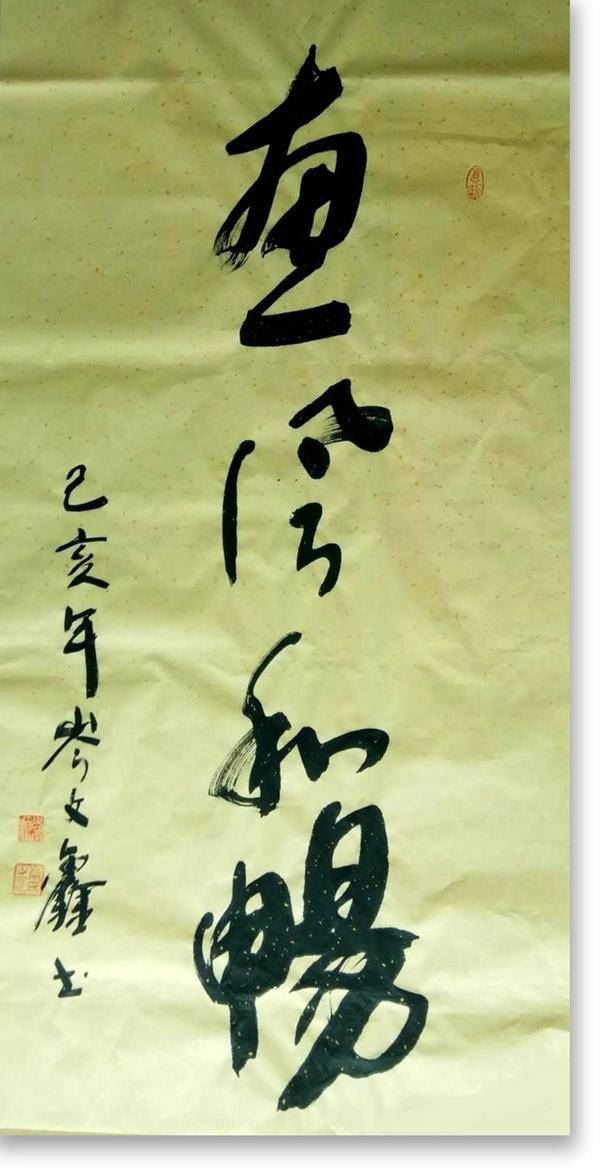 惠风和暢
己亥年岑文鑫书